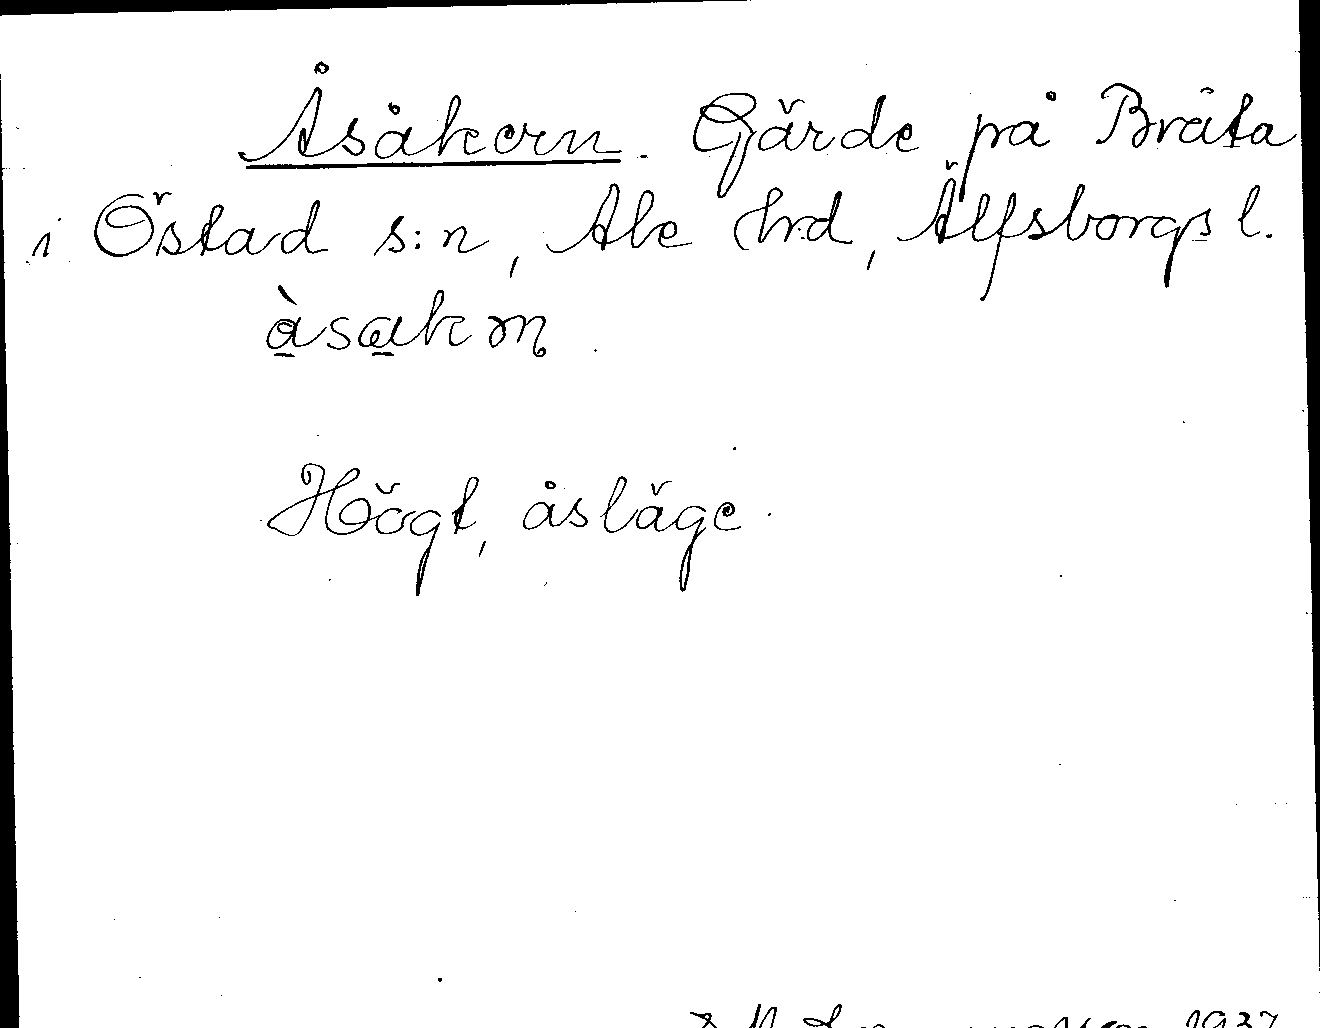 Åsåkern. Gärde på Bråta
i Östad s:n, Ale hrd, Älfsborgs l.
àsakɘn
Högt, åsläge.
1937